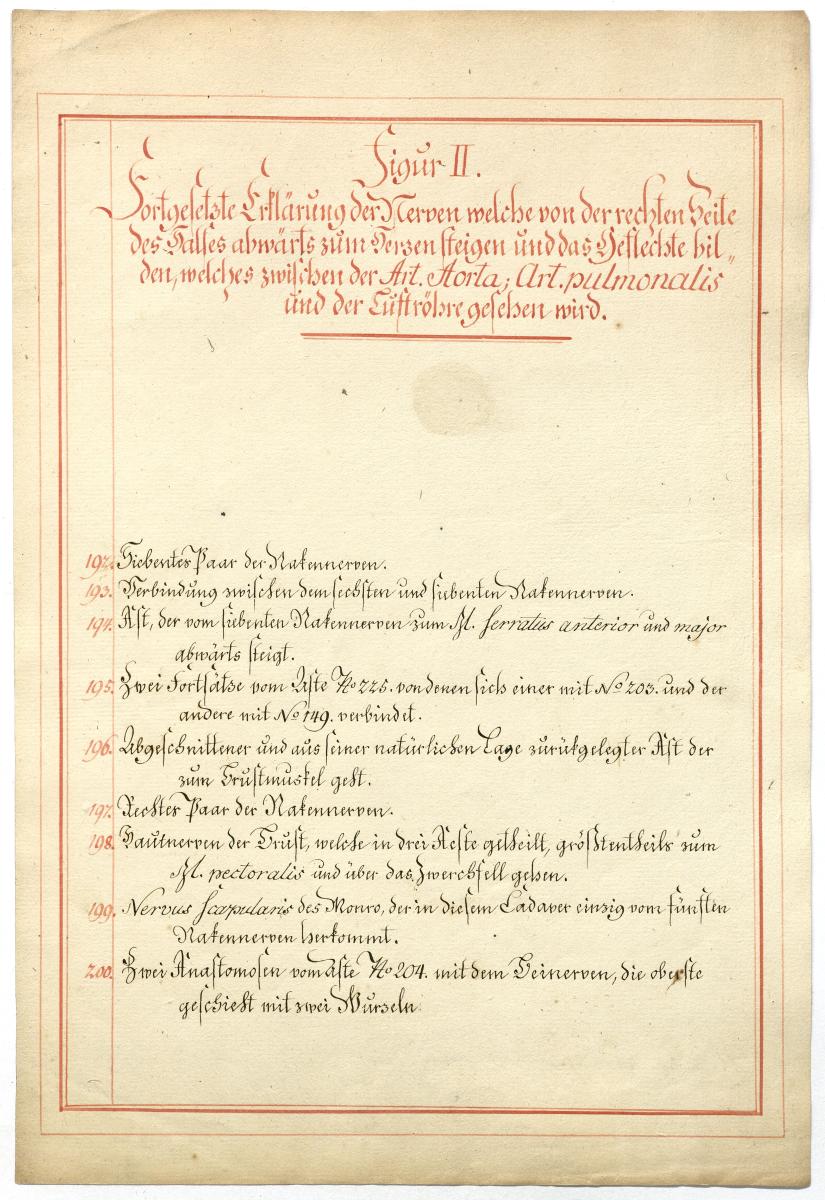 Figur II.
Fortgesetzte Erklärung der Nerven welche von der rechten Seite
des Halses abwärts zum Herzen steigen und das Geflechte bil„
den, welches zwischen der Art. Aorta; Art. pulmonalis
und der Luftröhre gesehen wird.
192. Siebentes Paar der Nakennerven.
193. Verbindung zwischen dem sechsten und siebenten Nakennerven.
194. Ast, der vom siebenten Nakennerven zum M. serratus anterior und major
abwärts steigt.
195. Zwei Fortsätze vom Aste No 225. von denen sich einer mit No 203. und der
andere mit No 149. verbindet.
196. Abgeschnittener und aus seiner natürlichen Lage zurükgelegter Ast der
zum Brustmuskel geht.
197. Rechtes Paar der Nakennerven.
198. Hautnerven der Brust, welche in drei Aeste getheilt, größtentheils zum
M. pectoralis und über das Zwerchfell gehen.
199. Nervus scapularis des Monro, der in diesem Cadaver einzig vom fünften
Nakennerven herkommt.
200. Zwei Anastomosen vom Aste No 204. mit dem Beinerven, die oberste
geschieht mit zwei Wurzeln.